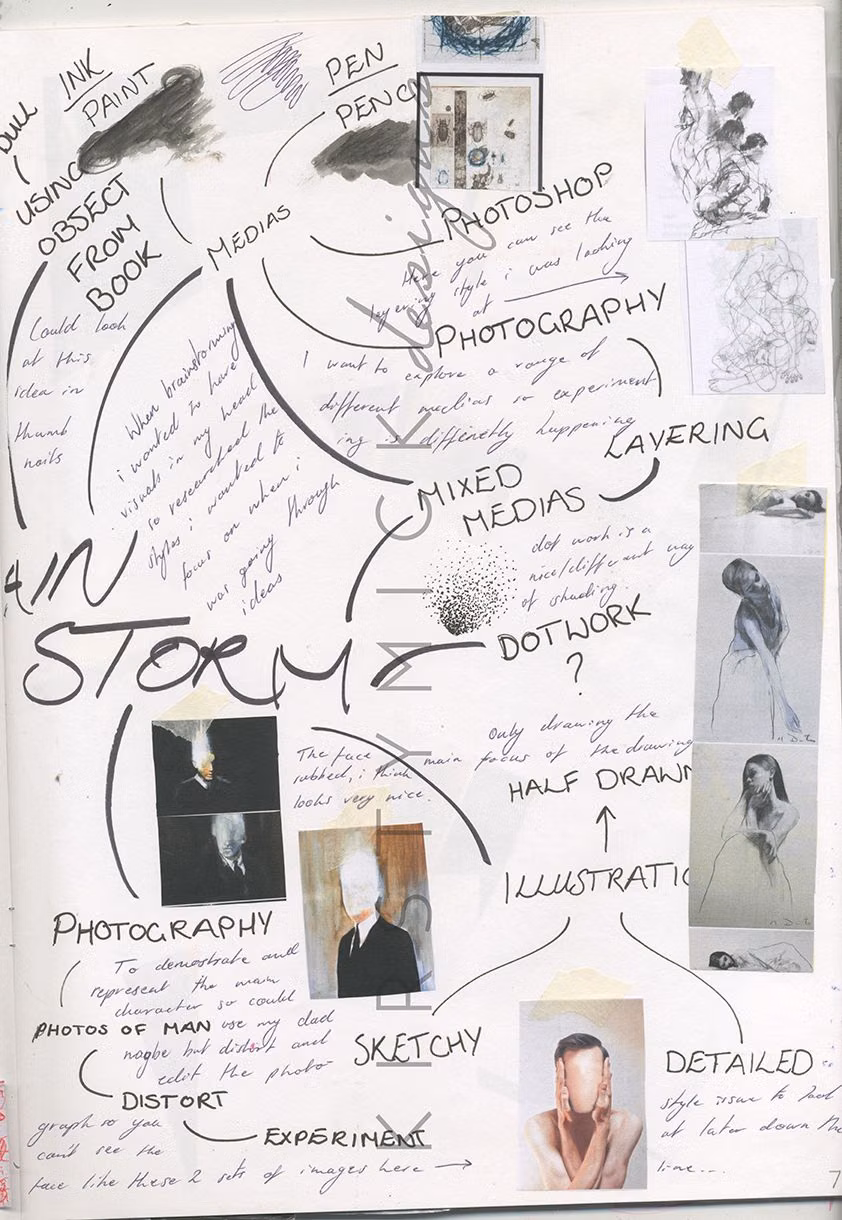 INK
PAINT
DULL
USING
OBJECT
FROM
BOOK
Could look
at this
idea in
thumb
nails
PEN
PENC
MEDIAS
PHOTOSHOP
Here you can see the
layering style i was looking
at
PHOTOGRAPHY
I want to explore a range of
different medias so experiment
ing is diffinetly happening
LAYERING
When brainstorming
i wanted to have
visuals in my head
so researched the
styles i wanted to
focus on when i
was going through
ideas
MIXED
MEDIAS
dot work is a
nice/different way
of shading.
DOTWORK
?
AIN
STORM
Only drawing the
main focus of the drawing
HALF DRAWN
ILLUSTRATIO
The face
rubbed, i think
looks very nice.
PHOTOGRAPHY
To demostrate and
represent the main
character so could
PHOTOS OF MAN use my dad
maybe but distort and
edit the photo-
DISTORT
graph so you
can't see the
EXPERIMENT
face like these 2 sets of images here
SKETCHY
DETAILED
style issue to look
at later down the
line...
KIRSTYMICK designs
7